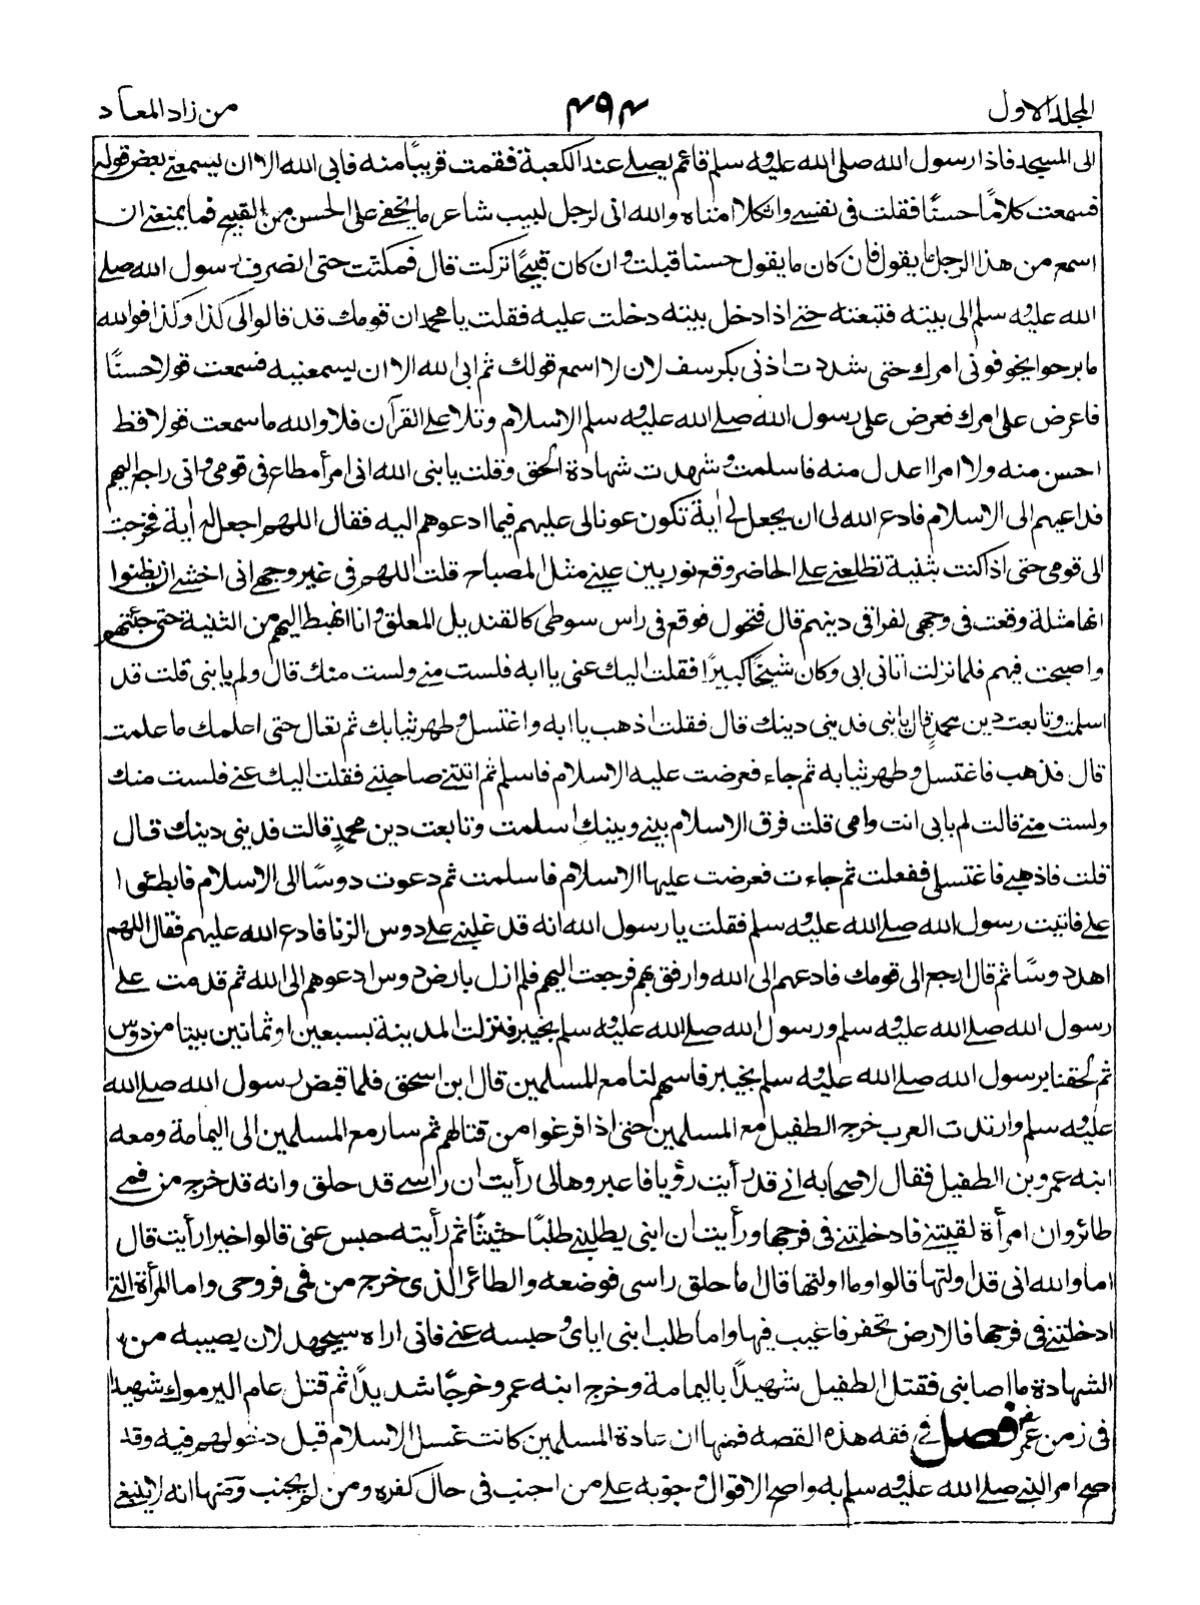 المجلد الاول
۴۹۴
من زاد المعاد
الى المسجد فاذا رسول الله صلى الله عليه وسلم قائم يصلي عند الكعبة فقمت قريبًا منه فابى الله الا ان يسمعني بعض قوله
فسمعت كلامًا حسنًا فقلت في نفسي واثكلا امناه والله اني لرجل لبيب شاعر ما يخفى علي الحسن من القبيح فما يمنعني ان
اسمع من هذا الرجل ما يقول فان كان ما يقول حسنا قبلت وان كان قبيحًا تركت قال فمكثت حتى انصرف رسول الله صلى
الله عليه وسلم الى بيته فتبعته حتى اذا دخل بيته دخلت عليه فقلت يا محمد ان قومك قد قالوا لي كذا وكذا فوالله
ما برحوا يخوفوني امرك حتى شددت اذني بكرسف لان لا اسمع قولك ثم ابى الله الا ان يسمعنيه فسمعت قولا حسنًا
فاعرض علي امرك فعرض علي رسول الله صلى الله عليه وسلم الاسلام وتلا علي القرآن فلا والله ما سمعت قولا قط
احسن منه ولا امرا اعدل منه فاسلمت وشهدت شهادة الحق وقلت يا نبي الله اني امرأ مطاع في قومي واني راجع اليهم
فداعيهم الى الاسلام فادع الله لي ان يجعل لي أية تكون عونا لي عليهم فيما ادعوهم اليه فقال اللهم اجعل له أية فخرجت
الى قومي حتى اذا كنت بثنية تطلعني على الحاضر وقع نور بين عيني مثل المصباح قلت اللهم في غير وجهي اني اخشى ان يظنوا
انها مثلة وقعت في وجهي لفراقي دينهم قال فتحول فوقع في راس سوطي كالقنديل المعلق وانا انهبط اليهم من الثنية حتى جئتهم
واصبحت فيهم فلما نزلت اتاني ابي وكان شيخًا كبيرًا فقلت اليك عني يا ابه فلست مني ولست منك قال ولم يا بني قلت قد
اسلمت وتابعت دين محمدٍ قال يا بني فديني دينك قال فقلت اذهب يا ابه واغتسل وطهر ثيابك ثم تعال حتى اعلمك ما علمت
قال فذهب فاغتسل وطهر ثيابه ثم جاء فعرضت عليه الاسلام فاسلم ثم اتتني صاحبتي فقلت اليك عني فلست منك
ولست مني قالت لم بابي انت وامي قلت فرق الاسلام بيني وبينك اسلمت وتابعت دين محمدٍ قالت فديني دينك قال
قلت فاذهبي فاغتسلي ففعلت ثم جاءت فعرضت عليها الاسلام فاسلمت ثم دعوت دوسًا الى الاسلام فابطئوا
علي فاتيت رسول الله صلى الله عليه وسلم فقلت يا رسول الله انه قد غلبني على دوس الزنا فادع الله عليهم فقال اللهم
اهد دوسًا ثم قال ارجع الى قومك فادعهم الى الله وارفق بهم فرجعت اليهم فلم ازل بارض دوس ادعوهم الى الله ثم قدمت على
رسول الله صلى الله عليه وسلم ورسول الله صلى الله عليه وسلم بخيبر فنزلت المدينة بسبعين او ثمانين بيتا من دوس
ثم لحقنا برسول الله صلى الله عليه وسلم بخيبر فاسهم لنا مع المسلمين قال ابن اسحق فلما قبض رسول الله صلى الله
عليه وسلم وارتدت العرب خرج الطفيل مع المسلمين حتى اذا فرغوا من قتالهم ثم سار مع المسلمين الى اليمامة ومعه
ابنه عمرو بن الطفيل فقال لاصحابه اني قد رأيت رؤيا فاعبروها لي رأيت ان راسي قد حلق وانه قد خرج من فمي
طائر وان امرأة لقيتني فادخلتني في فرجها ورأيت ان ابني يطلبني طلبًا حثيثًا ثم رأيته حبس عني قالوا خيرا رأيت قال
اما والله اني قد اولتها قالوا وما اولتها قال اما حلق راسي فوضعه والطائر الذي خرج من فمي فروحي واما المرأة التي
ادخلتني في فرجها فالارض تحفر فاغيب فيها واما طلب ابني اياي وحبسه عني فاني اراه سيجهد لان يصيبه من
الشهادة ما اصابني فقتل الطفيل شهيدًا باليمامة وخرج ابنه عمرو وخرجًا شديدًا ثم قتل عام اليرموك شهيدا
في زمن عمر فصل في فقه هذه القصه فمنها ان عادة المسلمين كانت غسل الاسلام قبل دخولهم فيه وقد
صح امر النبي صلى الله عليه وسلم به واصح الاقوال وجوبه على من اجنب في حال كفره ومن لم يجنب ومنها انه لا ينبغي